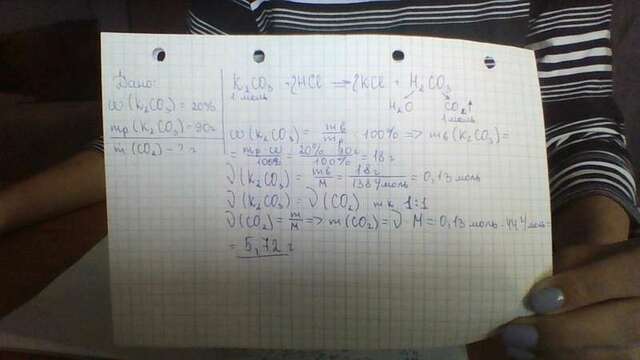 Дано:
ω (K₂CO₃) = 20%
mр (K₂CO₃) = 90г
m (CO₂) - ? г
K₂CO₃ + 2HCl = 2KCl + H₂CO₃
1 моль
H₂O CO₂↑
1 моль
ω (K₂CO₃) = mв/mр · 100% => mв (K₂CO₃) =
= mр · ω/100% = 20% · 90г/100% = 18 г
ν (K₂CO₃) = mв/M = 18г/138 г/моль = 0,13 моль
ν (K₂CO₃) = ν (CO₂) т.к. 1:1
ν (CO₂) = m/M => m (CO₂) = ν · M = 0,13 моль · 44 г/моль =
= 5,72 г